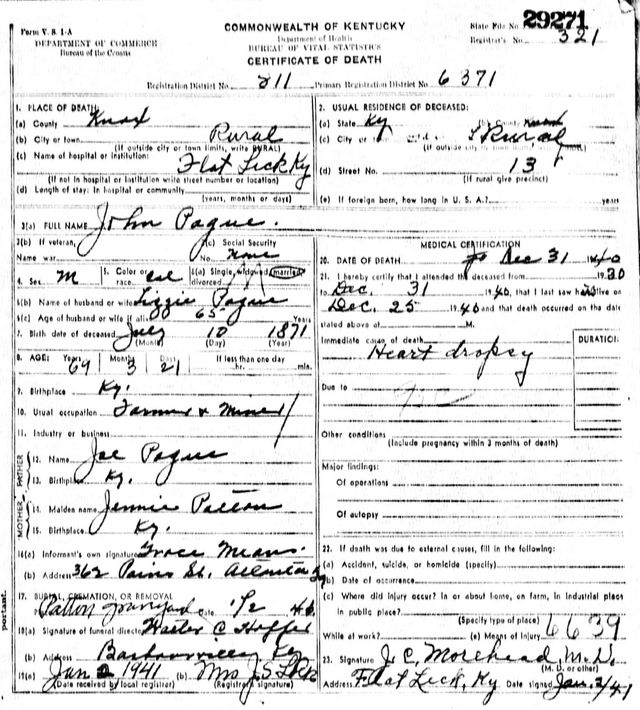 Form V. S. 1-A
DEPARTMENT OF COMMERCE
Bureau of the Census
COMMONWEALTH OF KENTUCKY
Department of Health
BUREAU OF VITAL STATISTICS
CERTIFICATE OF DEATH
State File No. 29271
Registrar's No. 321
Registration District No. 211 Primary Registration District No. 6371
1. PLACE OF DEATH:
(a) County Knox
(b) City or town Rural
(If outside city or town limits, write RURAL)
(c) Name of hospital or institution: Flat Lick Ky
(If not in hospital or institution write street number or location)
(d) Length of stay: In hospital or community
(years, months or days)
2. USUAL RESIDENCE OF DECEASED:
(a) State Ky (b) County Knox
(c) City or Rural
(d) Street No. 13
(If rural give precinct)
(e) If foreign born, how long in U. S. A.? years
3(a) FULL NAME John Pogue.
3(b) If veteran, Name war
3(c) Social Security No. None
4. Sex M 5. Color or race Col 6(a) Single, widowed, married, divorced
6(b) Name of husband or wife Lizzie Pogue
6(c) Age of husband or wife if alive 65 Years
7. Birth date of deceased July 10 1871
(Month) (Day) (Year)
8. AGE: Years 69 Months 3 Days 21 If less than one day hr. min.
9. Birthplace Ky.
10. Usual occupation Farmer & Miner
11. Industry or business
FATHER
12. Name Joe Pogue
13. Birthplace Ky.
MOTHER
14. Maiden name Jennie Patton
15. Birthplace Ky.
16(a) Informant's own signature Grace Means.
(b) Address 362 St.
17. BURIAL, CREMATION, OR REMOVAL
Patton graveyard Date 1/2
18(a) Signature of funeral director
(b) Address Barbourville Ky
19(a) Jan 2 1941 (b) Mrs J. S.
(Date received by local registrar) (Registrar's signature)
MEDICAL CERTIFICATION
20. DATE OF DEATH Dec 31 1940
21. I hereby certify that I attended the deceased from 1930
to Dec. 31 1940, that I last saw him alive on
Dec. 25 1940 and that death occurred on the date
stated above at M.
Immediate cause of death Heart dropsy
DURATION:
Due to
Other conditions
(Include pregnancy within 3 months of death)
Major findings:
Of operations
Of autopsy
22. If death was due to external causes, fill in the following:
(a) Accident, suicide, or homicide (specify)
(b) Date of occurrence
(c) Where did injury occur? In or about home, on farm, in industrial place
in public place?
(Specify type of place)
While at work? (e) Means of injury 6639
23. Signature J. C. Morehead M. D.
(M. D. or other)
Address Flat Lick, Ky Date signed Jan. 2/41
portant.